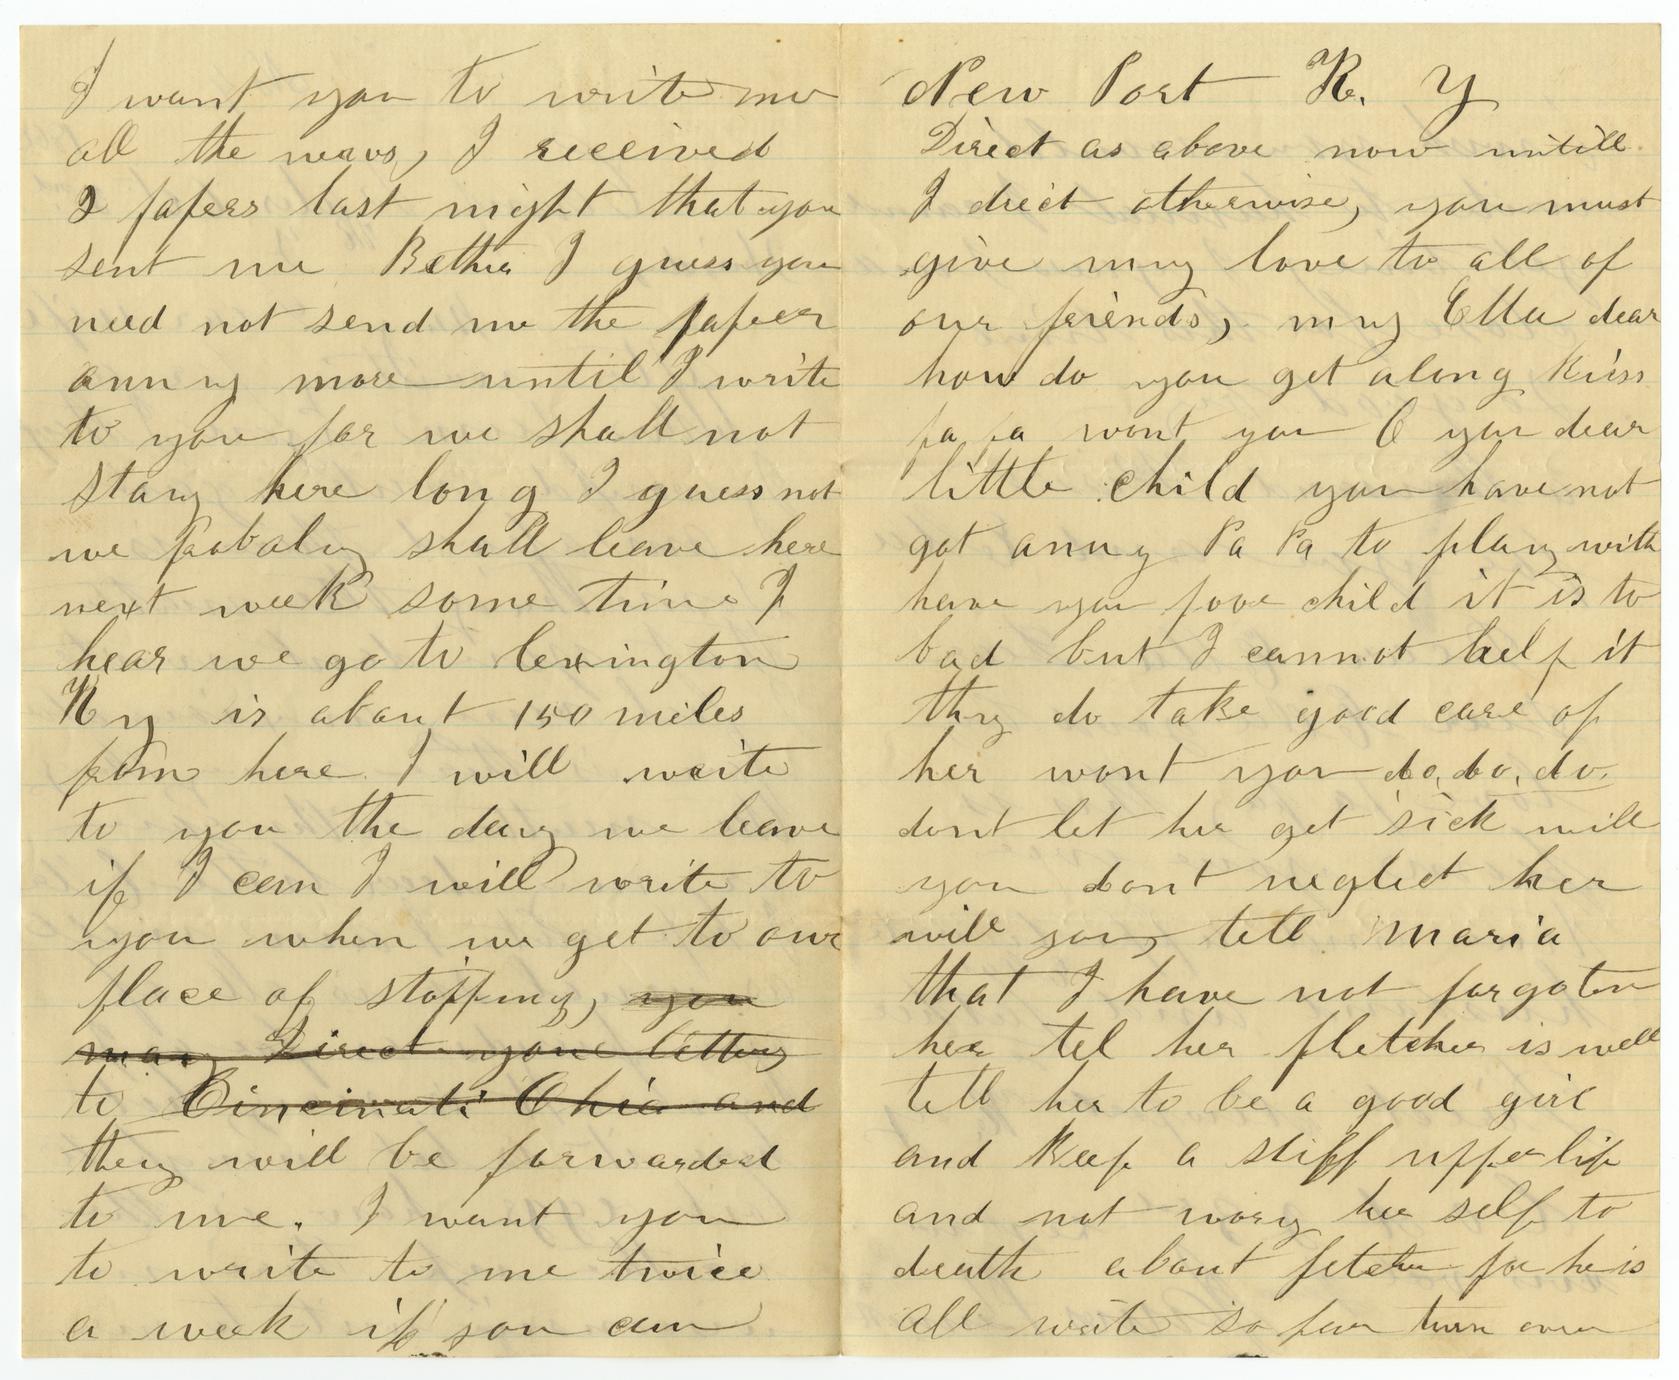 I want you to write me
all the news, I received
2 papers last night that you
sent me Bethia I guess you
need not send me the paper
anny more until I write
to you for we shall not
stay here long I guess not
we pobaly shall leave here
next week some time I
hear we go to lexington
Ky is about 150 miles
from here I will write
to you the day we leave
if I can I will write to
you when we get to our
place of stopping, you
may Direct your letters
to Cincinati Ohio and
they will be forwarded
to me. I want you
to write to me twice
a week if you can
New Port K. Y
Direct as above now untill
I driect otherwise, you must
give my love to all of
our friends, my Ella dear
how do you get along kiss
pa pa wont you O you dear
little child you have not
got anny Pa Pa to play with
have you poor child it is to
bad but I cannot help it
thy do take good care of
her wont you do, do, do,
dont let her get sick will
you dont neglect her
will you, tell Maria
that I have not forgoten
her tel her fletcher is well
tell her to be a good girl
and keep a stiff upper lip
and not wory her self to
death about fetcher for he is
all write so far turn over